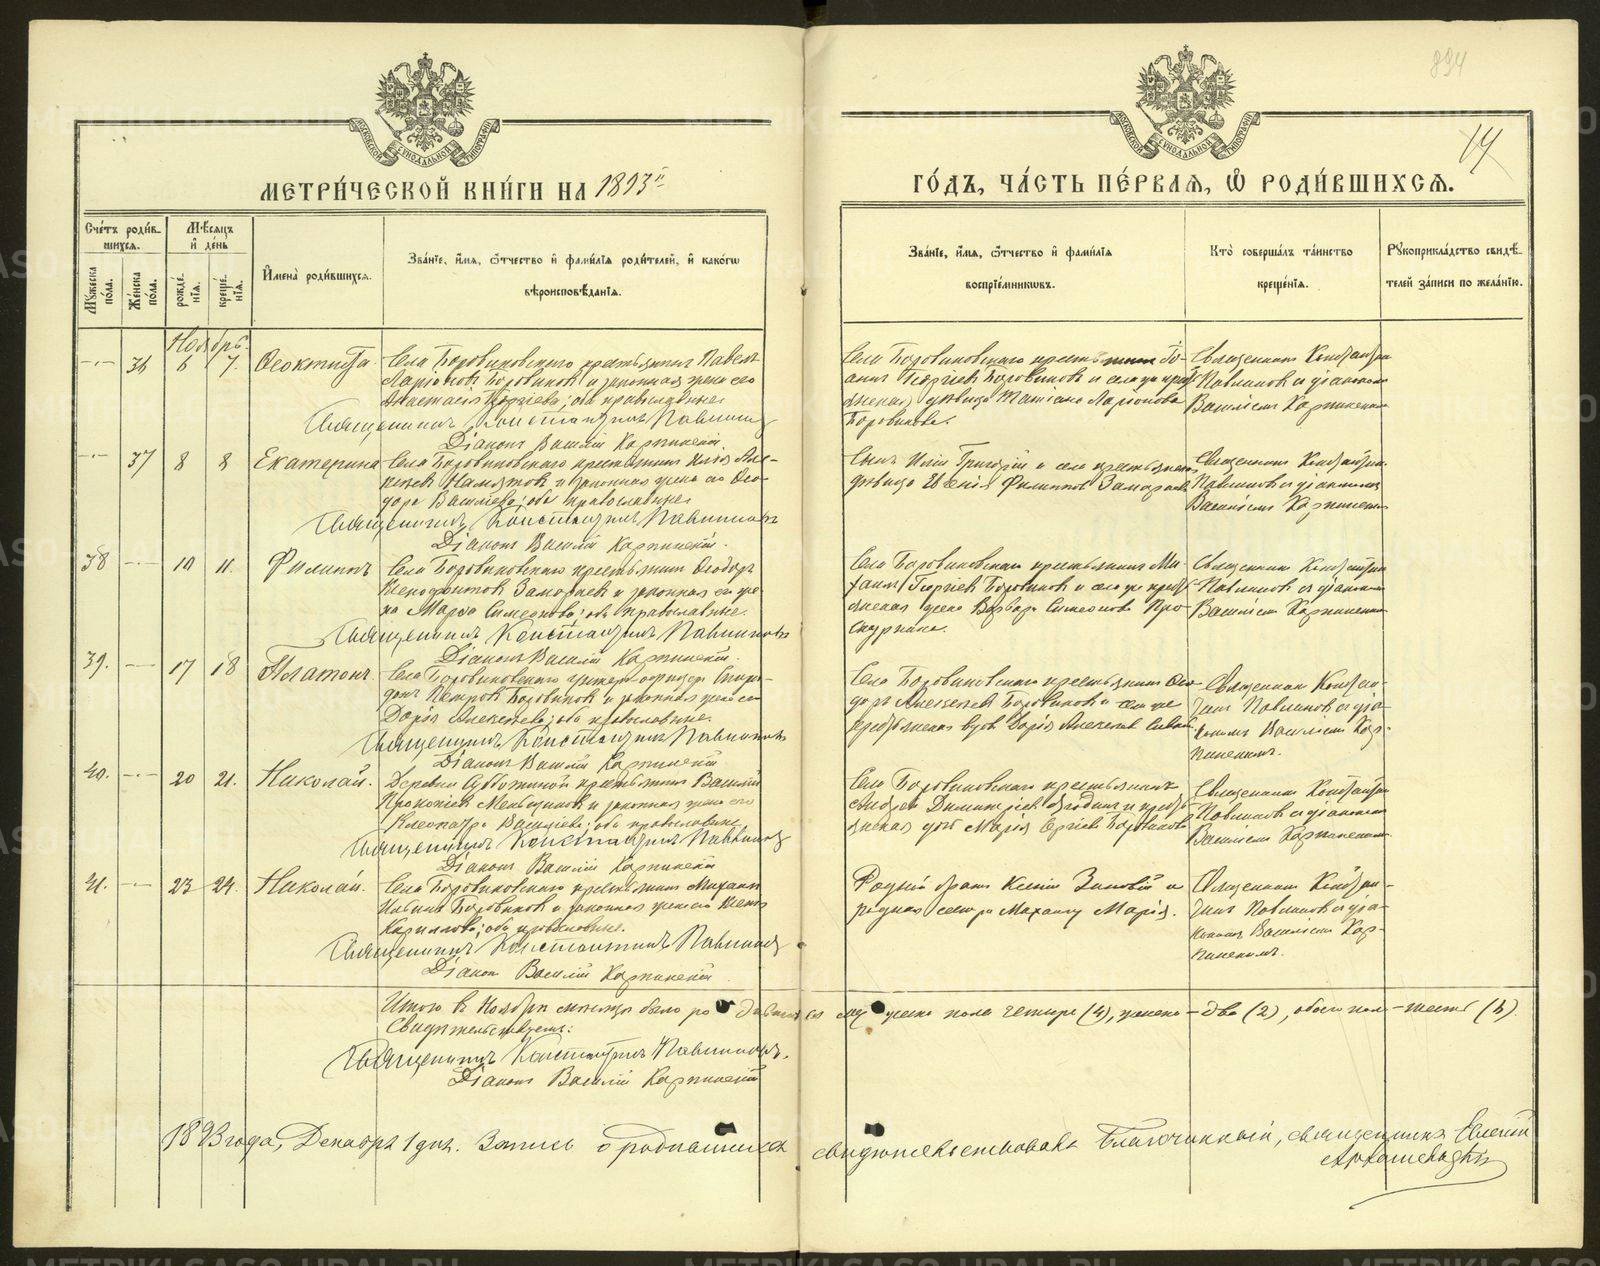 894
14
МОСКОВСКОЙ СѴНОДАЛЬНОЙ ТИПОГРАФІИ
МОСКОВСКОЙ СѴНОДАЛЬНОЙ ТИПОГРАФІИ
МЕТРИ́ЧЕСКОЙ КНИ́ГИ НА 1893й
ГО́ДЪ, ЧА́СТЬ ПЕ́РВАЯ, Ѡ РОДИ́ВШИХСЯ.
Сче́тъ роди́в-
шихся.
Му́жеска по́ла.
Же́нска по́ла.
Мѣ́сяцъ
и де́нь
рожде́нія.
креще́нія.
Имена̀ роди́вшихся.
Зва́ніе, и́мя, ѻ́тчество и фами́лія роди́телей, и како́гѡ
вѣроисповѣ́данія.
Зва́ніе, и́мя, ѻ́тчество и фами́лія
воспріе́мниковъ.
Кто̀ соверша́лъ та́инство
креще́нія.
Рукоприкла́дство свидѣ́-
телей за́писи по жела́нію.
Ноябрь
36 6 7. Ѳеоктиста.
Села Боровиковскаго крестьянинъ Павелъ
Ларіоновъ Боровиковъ и законная жена его
Анастасія Георгіева; оба православные
Священникъ Константинъ Павлиновъ
Діаконъ Василій Карпинскій
Села Боровиковскаго Іо-
аннъ Георгіевъ Боровиковъ и села
дѣвица Татіана Ларіонова
Боровикова.
Священникъ Константинъ
Павлиновъ съ діакономъ
Василіемъ Карпинскимъ
37 8 8 Екатерина
Села Боровиковскаго крестьянинъ Илія Але-
ксѣевъ и законная жена его Ѳео-
дора Василіева; оба православные
Священникъ Константинъ Павлиновъ
Діаконъ Василій Карпинскій.
Сынъ Иліи Григорій и села
дѣвица Филиппова Замараева
Священникъ Константинъ
Павлиновъ съ діакономъ
Василіемъ Карпинскимъ
38 10 11. Филиппъ
Села Боровиковскаго крестьянинъ Ѳеодоръ
Ксенофонтовъ Замараевъ и законная его же-
на Марѳа Симеонова; оба православные.
Священникъ Константинъ Павлиновъ
Діаконъ Василій Карпинскій.
Села Боровиковскаго крестьянинъ Ми-
хаилъ Георгіевъ Боровиковъ и села же кресть-
янская жена Варвара Симеонова Про-
скурина.
Священникъ Константинъ
Павлиновъ съ діакономъ
Василіемъ Карпинскимъ
39. 17 18 Платонъ.
Села Боровиковскаго унтеръ-офицеръ Спири-
донъ Петровъ Боровиковъ и законная жена его
Дарія Алексѣева; оба православные.
Священникъ Константинъ Павлиновъ
Діаконъ Василій Карпинскій
Села Боровиковскаго крестьянинъ Ѳео-
доръ Алексѣевъ Боровиковъ и села же
крестьянская вдова Дарія Алексѣева
Священникъ Констан-
тинъ Павлиновъ съ діа-
кономъ Василіемъ Кар-
пинскимъ.
40. 20 21. Николай.
Деревни крестьянинъ Василій
Прокопіевъ и законная жена его
Клеопатра Василіева; оба православные
Священникъ Константинъ Павлиновъ
Діаконъ Василій Карпинскій
Села Боровиковскаго крестьянинъ
Андрей Димитріевъ и кресть-
янская Марія Боровикова
Священникъ Константинъ
Павлиновъ съ діакономъ
Василіемъ Карпинскимъ.
41. 23 24. Николай.
Села Боровиковскаго крестьянинъ Михаилъ
Ильинъ Боровиковъ и законная жена его Ксенія
Кириллова; оба православные.
Священникъ Константинъ Павлиновъ
Діаконъ Василій Карпинскій
Родный братъ Ксеніи Зиновій и
родная сестра Михаилу Марія.
Священникъ Констан-
тинъ Павлиновъ съ діа-
кономъ Василіемъ Кар-
пинскимъ.
Итого въ Ноябрѣ мѣсяцѣ было родившихся мужеска пола четыре (4), женска – два (2), обоего пола – шесть (6).
Свидѣтельствуемъ:
Священникъ Константинъ Павлиновъ.
Діаконъ Василій Карпинскій
1893 года, Декабря 1 дня. Запись о родившихся свидѣтельствовалъ Благочинный, священникъ Евгеній